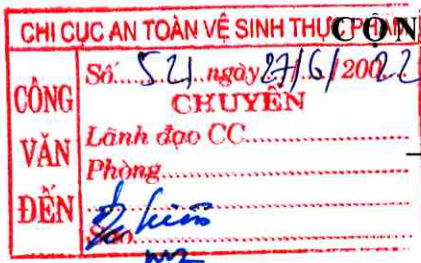 CHI CỤC AN TOÀN VỆ SINH THỰC PHẨM
CỘN
CÔNG VĂN ĐẾN
Số.....521...ngày 27/6/2022
CHUYỂN
Lãnh đạo CC
Phòng